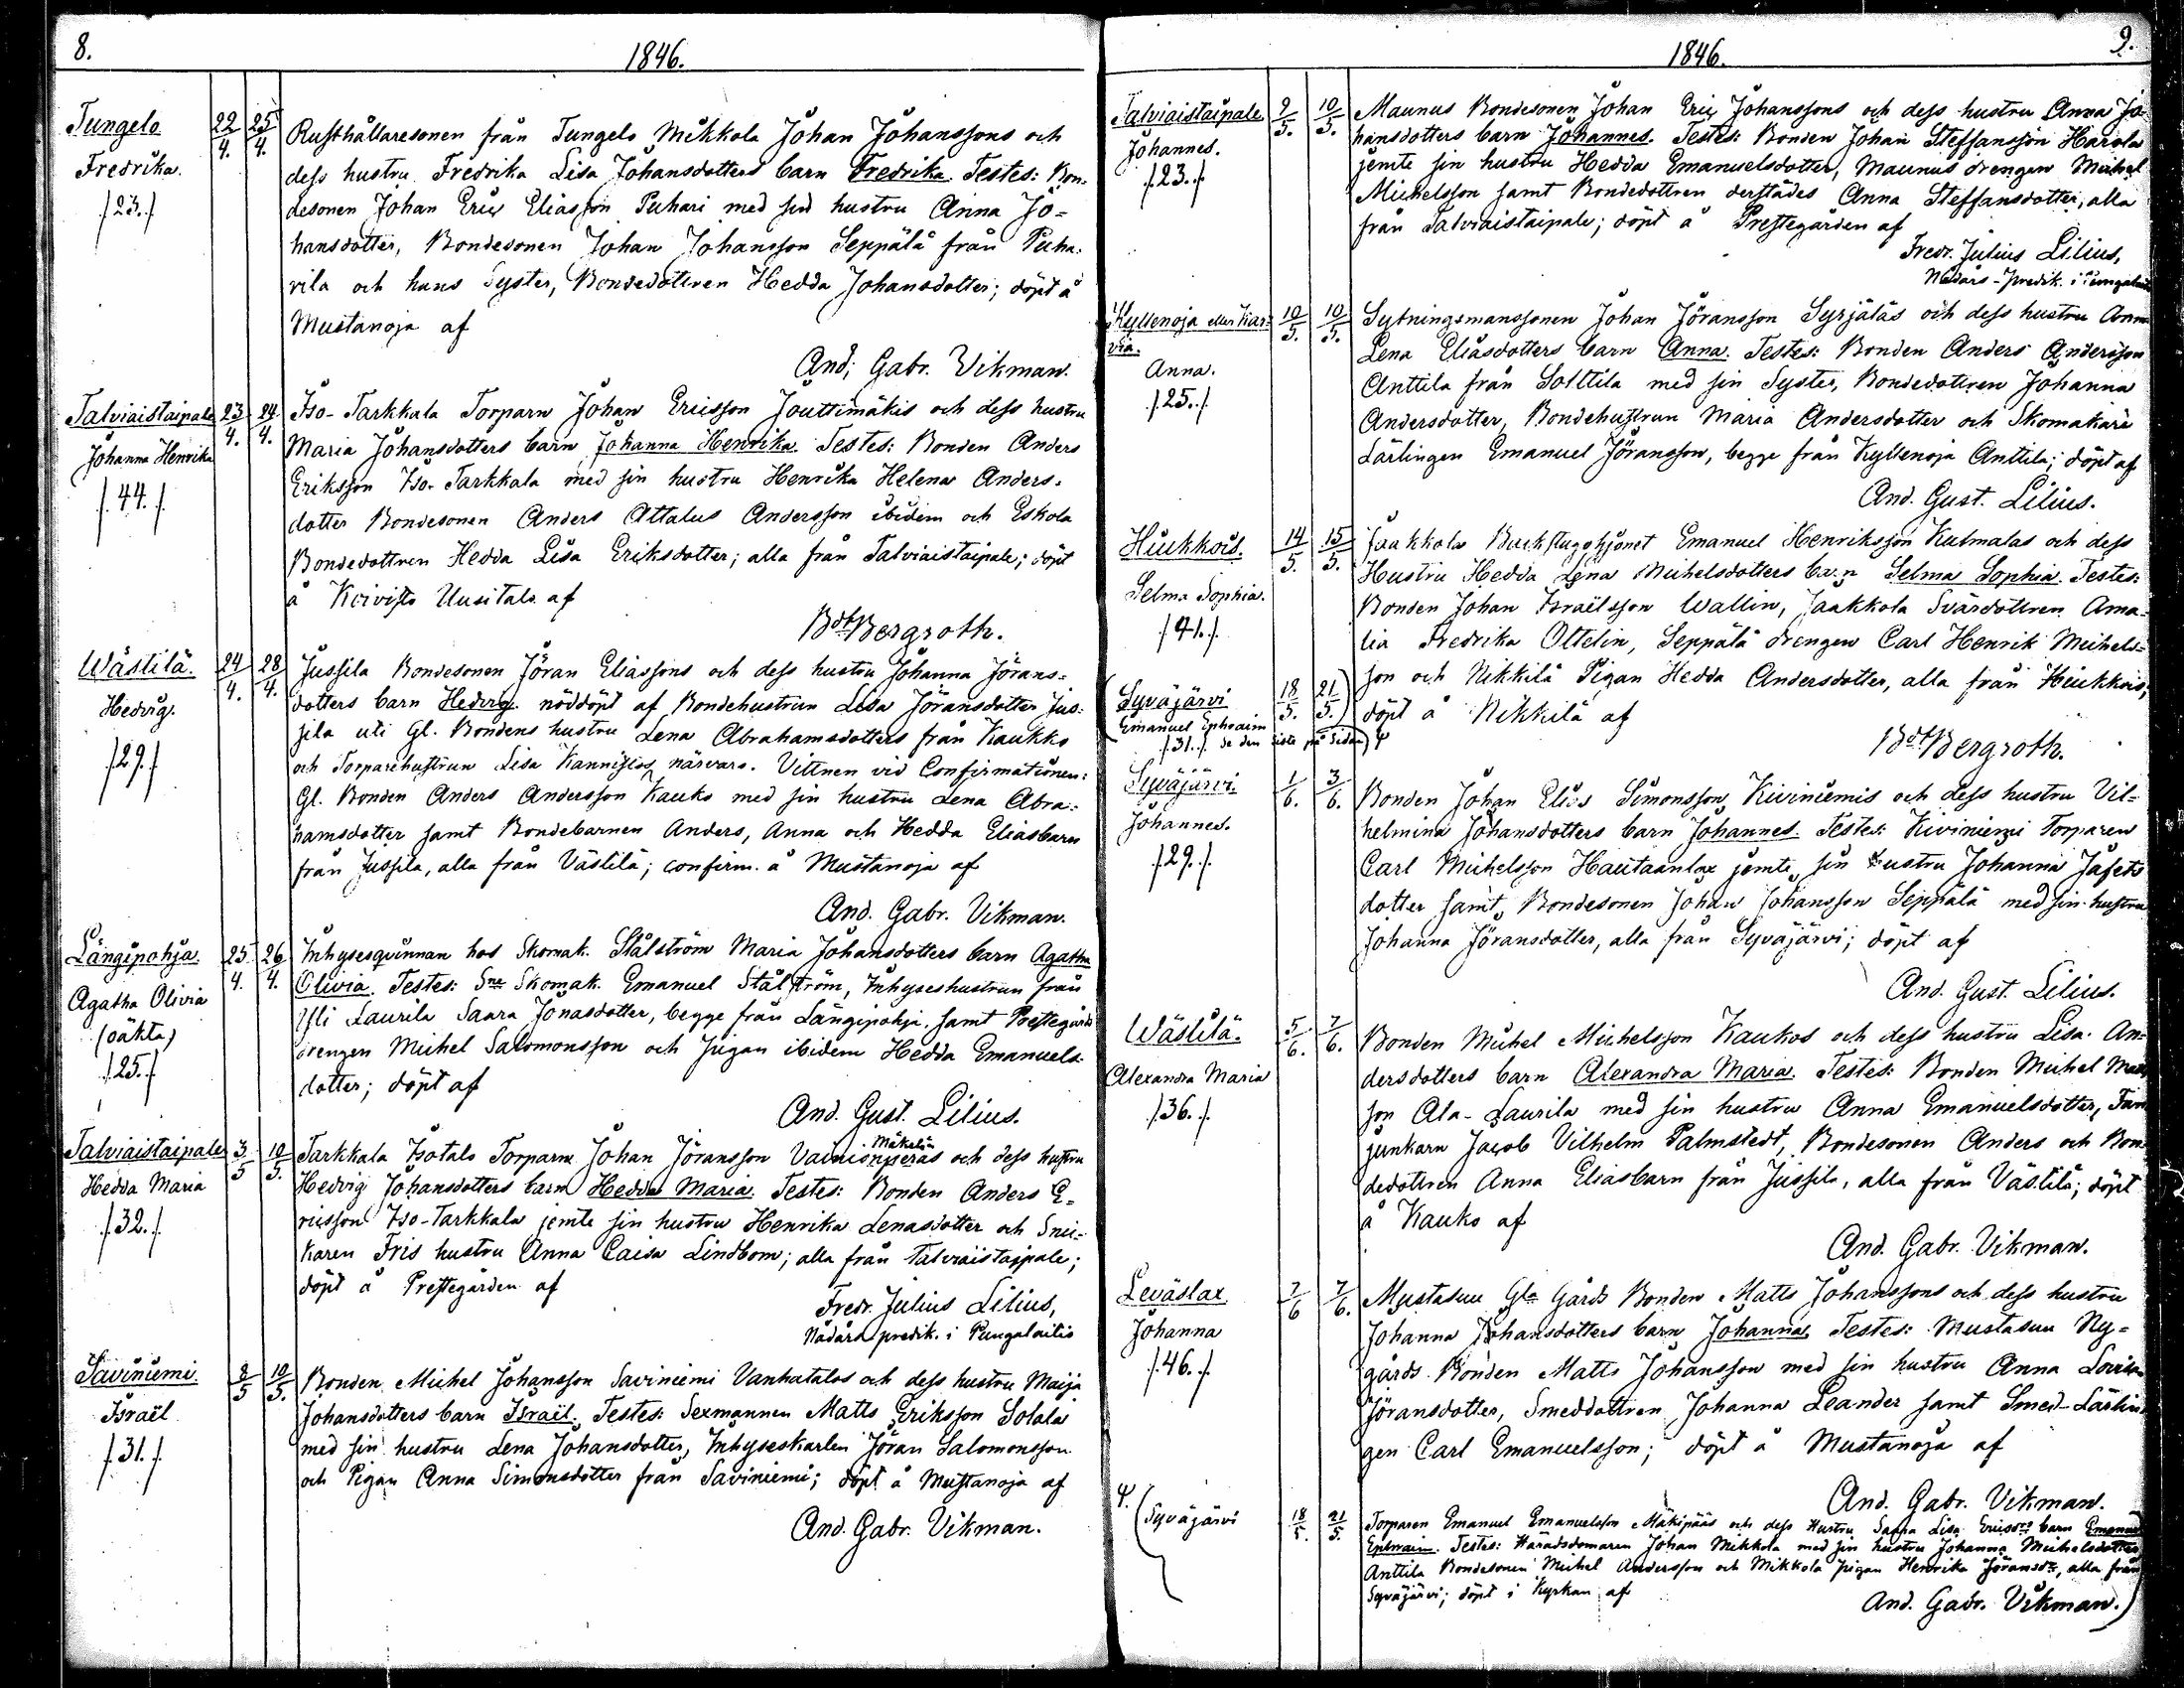 8.
1846.
Tungelo
Fredrika.
/.23./
22/4. 25/4.
Rusthållaresonen från Tungelo Mikkola Johan Johanssons och
dess hustru Fredrika Lisa Johansdotters barn Fredrika. Testes: Bon-
desonen Johan Eric Eliasson Puhari med sin hustru Anna Jo=
hansdotter, Bondesonen Johan Johansson Seppälä från Puha-
rila och hans Syster, Bondedottren Hedda Johansdotter; döpt å
Mustanoja af
And. Gabr. Vikman.
Talviaistaipale
Johanna Henrika
/.44./
23/4. 24/4.
Iso-Tarkkala Torparn Johan Ericsson Jouttimäkis och dess hustru
Maria Johansdotters barn Johanna Henrika. Testes: Bonden Anders
Eriksson Iso-Tarkkala med sin hustru Henrika Helena Anders-
dotter Bondesonen Anders Attalus Andersson ibidem och Eskola
Bondedottren Hedda Lisa Eriksdotter; alla från Talviaistaipale; döpt
å Koivisto Uusitalo af
Bdt Bergroth.
Wästilä.
Hedvig.
/.29./
24/4. 28/4.
Jussila Bondesonen Jöran Eliassons och dess hustru Johanna Jörans=
dotters barn Hedvig. nöddöpt af Bondehustrun Lisa Jöransdotter Jus-
sila uti Gl. Bondens hustru Lena Abrahamsdotters från Kaukko
och Torparehustrun Lisa Kannistos närvaro. Vittnen vid Confirmationen:
Gl. Bonden Anders Andersson Kauko med sin hustru Lena Abra-
hamsdotter samt Bondebarnen Anders, Anna och Hedda Eliasbarn
från Jussila, alla från Västilä; confirm. å Mustanoja af
And. Gabr. Vikman.
Längipohja.
Agatha Olivia
(oäkta)
/.25./
25/4. 26/4.
Inhysesqvinnan hos Skomak. Stålström Maria Johansdotters barn Agatha
Olivia. Testes: Sne Skomak. Emanuel Stålström, Inhyseshustrun från
Yli Laurila Saara Jonasdotter, begge från Längipohja samt Prestegårds
drengen Michel Salomonsson och Pigan ibidem Hedda Emanuels-
dotter; döpt af
And. Gust. Lilius.
Talviaistaipale
Hedda Maria
/.32./
3/5 10/5.
Mäkelän
Tarkkala Isotalo Torparne Johan Jöransson Vainionperäs och dess hustru
Hedvig Johansdotters barn Hedda Maria. Testes: Bonden Anders E-
ricsson Iso-Tarkkala jemte sin hustru Henrika Lenasdotter och Snic-
karen Fris hustru Anna Caisa Lindbom; alla från Talviaistaipale;
döpt å Prestegården af
Fredr. Julius Lilius,
Nådårs predik. i Pungalaitio
Saviniemi.
Israël
/.31./
8/5 10/5.
Bonden Michel Johansson Saviniemi Vanhatalos och dess hustru Maija
Johansdotters barn Israël. Testes: Sexmannen Matts Eriksson Solala
med sin hustru Lena Johansdotter, Inhyseskarlen Jöran Salomonsson
och Pigan Anna Simonsdotter från Saviniemi; döpt å Mustanoja af
And. Gabr. Vikman.
9.
1846.
Talviaistaipale
Johannes.
/.23./
9/5. 10/5.
Maunus Bondesonen Johan Eric Johanssons och dess hustru Anna Jo-
hansdotters barn Johannes. Testes: Bonden Johan Steffansson Harola
jemte sin hustru Hedda Emanuelsdotter, Maunus drengen Michel
Michelsson samt Bondedottren derstädes Anna Steffansdotter, alla
från Talviaistaipale; döpt å Prestegården af
Fredr. Julius Lilius,
Nådårs-predik. i Pungalaitio
Kyllenoja eller Kar-
via.
Anna.
/.25./
10/5. 10/5.
Sytningsmanssonen Johan Jöransson Syrjäläs och dess hustru Anna
Lena Eliasdotters barn Anna. Testes: Bonden Anders Andersson
Anttila från Solttila med sin Syster, Bondedottren Johanna
Andersdotter, Bondehustrun Maria Andersdotter och Skomakare
Lärlingen Emanuel Jöransson, begge från Kyllenoja Anttila; döpt af
And. Gust. Lilius.
Hiukkois.
Selma Sophia.
/.41./
14/5. 15/5.
Jaakkola Backstugohjonet Emanuel Henriksson Kulmalas och dess
Hustru Hedda Lena Michelsdotters barn Selma Sophia. Testes:
Bonden Johan Israëlsson Wallin, Jaakkola Svärdottren Ama-
lia Fredrika Ottelin, Seppälä drengen Carl Henrik Michels-
son och Nikkilä Pigan Hedda Andersdotter, alla från Hiukkois;
döpt å Nikkilä af
Bdt Bergroth.
(Syväjärvi
Emanuel Ephraim
/.31./ se den siste på sidan) Ψ
18/5. 21/5.)
Syväjärvi.
Johannes.
/.29./
1/6. 3/6.
Bonden Johan Elias Simonsson Kiviniemis och dess hustru Vil=
helmina Johansdotters barn Johannes. Testes: Kiviniemi Torparen
Carl Michelsson Hautaanlax jemte sin hustru Johanna Jafets
dotter samt Bondesonen Johan Johansson Seppälä med sin hustru
Johanna Jöransdotter, alla från Syväjärvi; döpt af
And. Gust. Lilius.
Wästilä.
Alexandra Maria
/.36./
5/6. 7/6.
Bonden Michel Michelsson Kaukos och dess hustru Lisa An-
dersdotters barn Alexandra Maria. Testes: Bonden Michel Matts
son Ala-Laurila med sin hustru Anna Emanuelsdotter, Fan
junkarn Jacob Vilhelm Palmstedt, Bondesonen Anders och Bon-
dedottren Anna Eliasbarn från Jussila, alla från Västilä; döpt
å Kauko af
And. Gabr. Vikman.
Leväslax
Johanna
/.46./
7/6 7/6.
Mustasuu Gla Gårds Bonden Matts Johanssons och dess hustru
Johanna Johansdotters barn Johanna. Testes: Mustasuu Ny=
gårds Bonden Matts Johansson med sin hustru Anna Lovisa
Jöransdotter, Smeddottren Johanna Leander samt Smed-Lärlin-
gen Carl Emanuelsson; döpt å Mustanoja af
And. Gabr. Vikman.
Ψ.
(Syväjärvi
18/5. 21/5.
Torparen Emanuel Emanuelsson Mäkipääs och dess Hustru Saara Lisa Ericsdrs barn Emanuel
Ephraim. Testes: Häradsdomaren Johan Mikkola med sin hustru Johanna Michelsdotter
Anttila Bondesonen Michel Andersson och Mikkola pigan Henrika Jöransdr, alla från
Syväjärvi; döpt i Kyrkan af
And. Gabr. Vikman.)